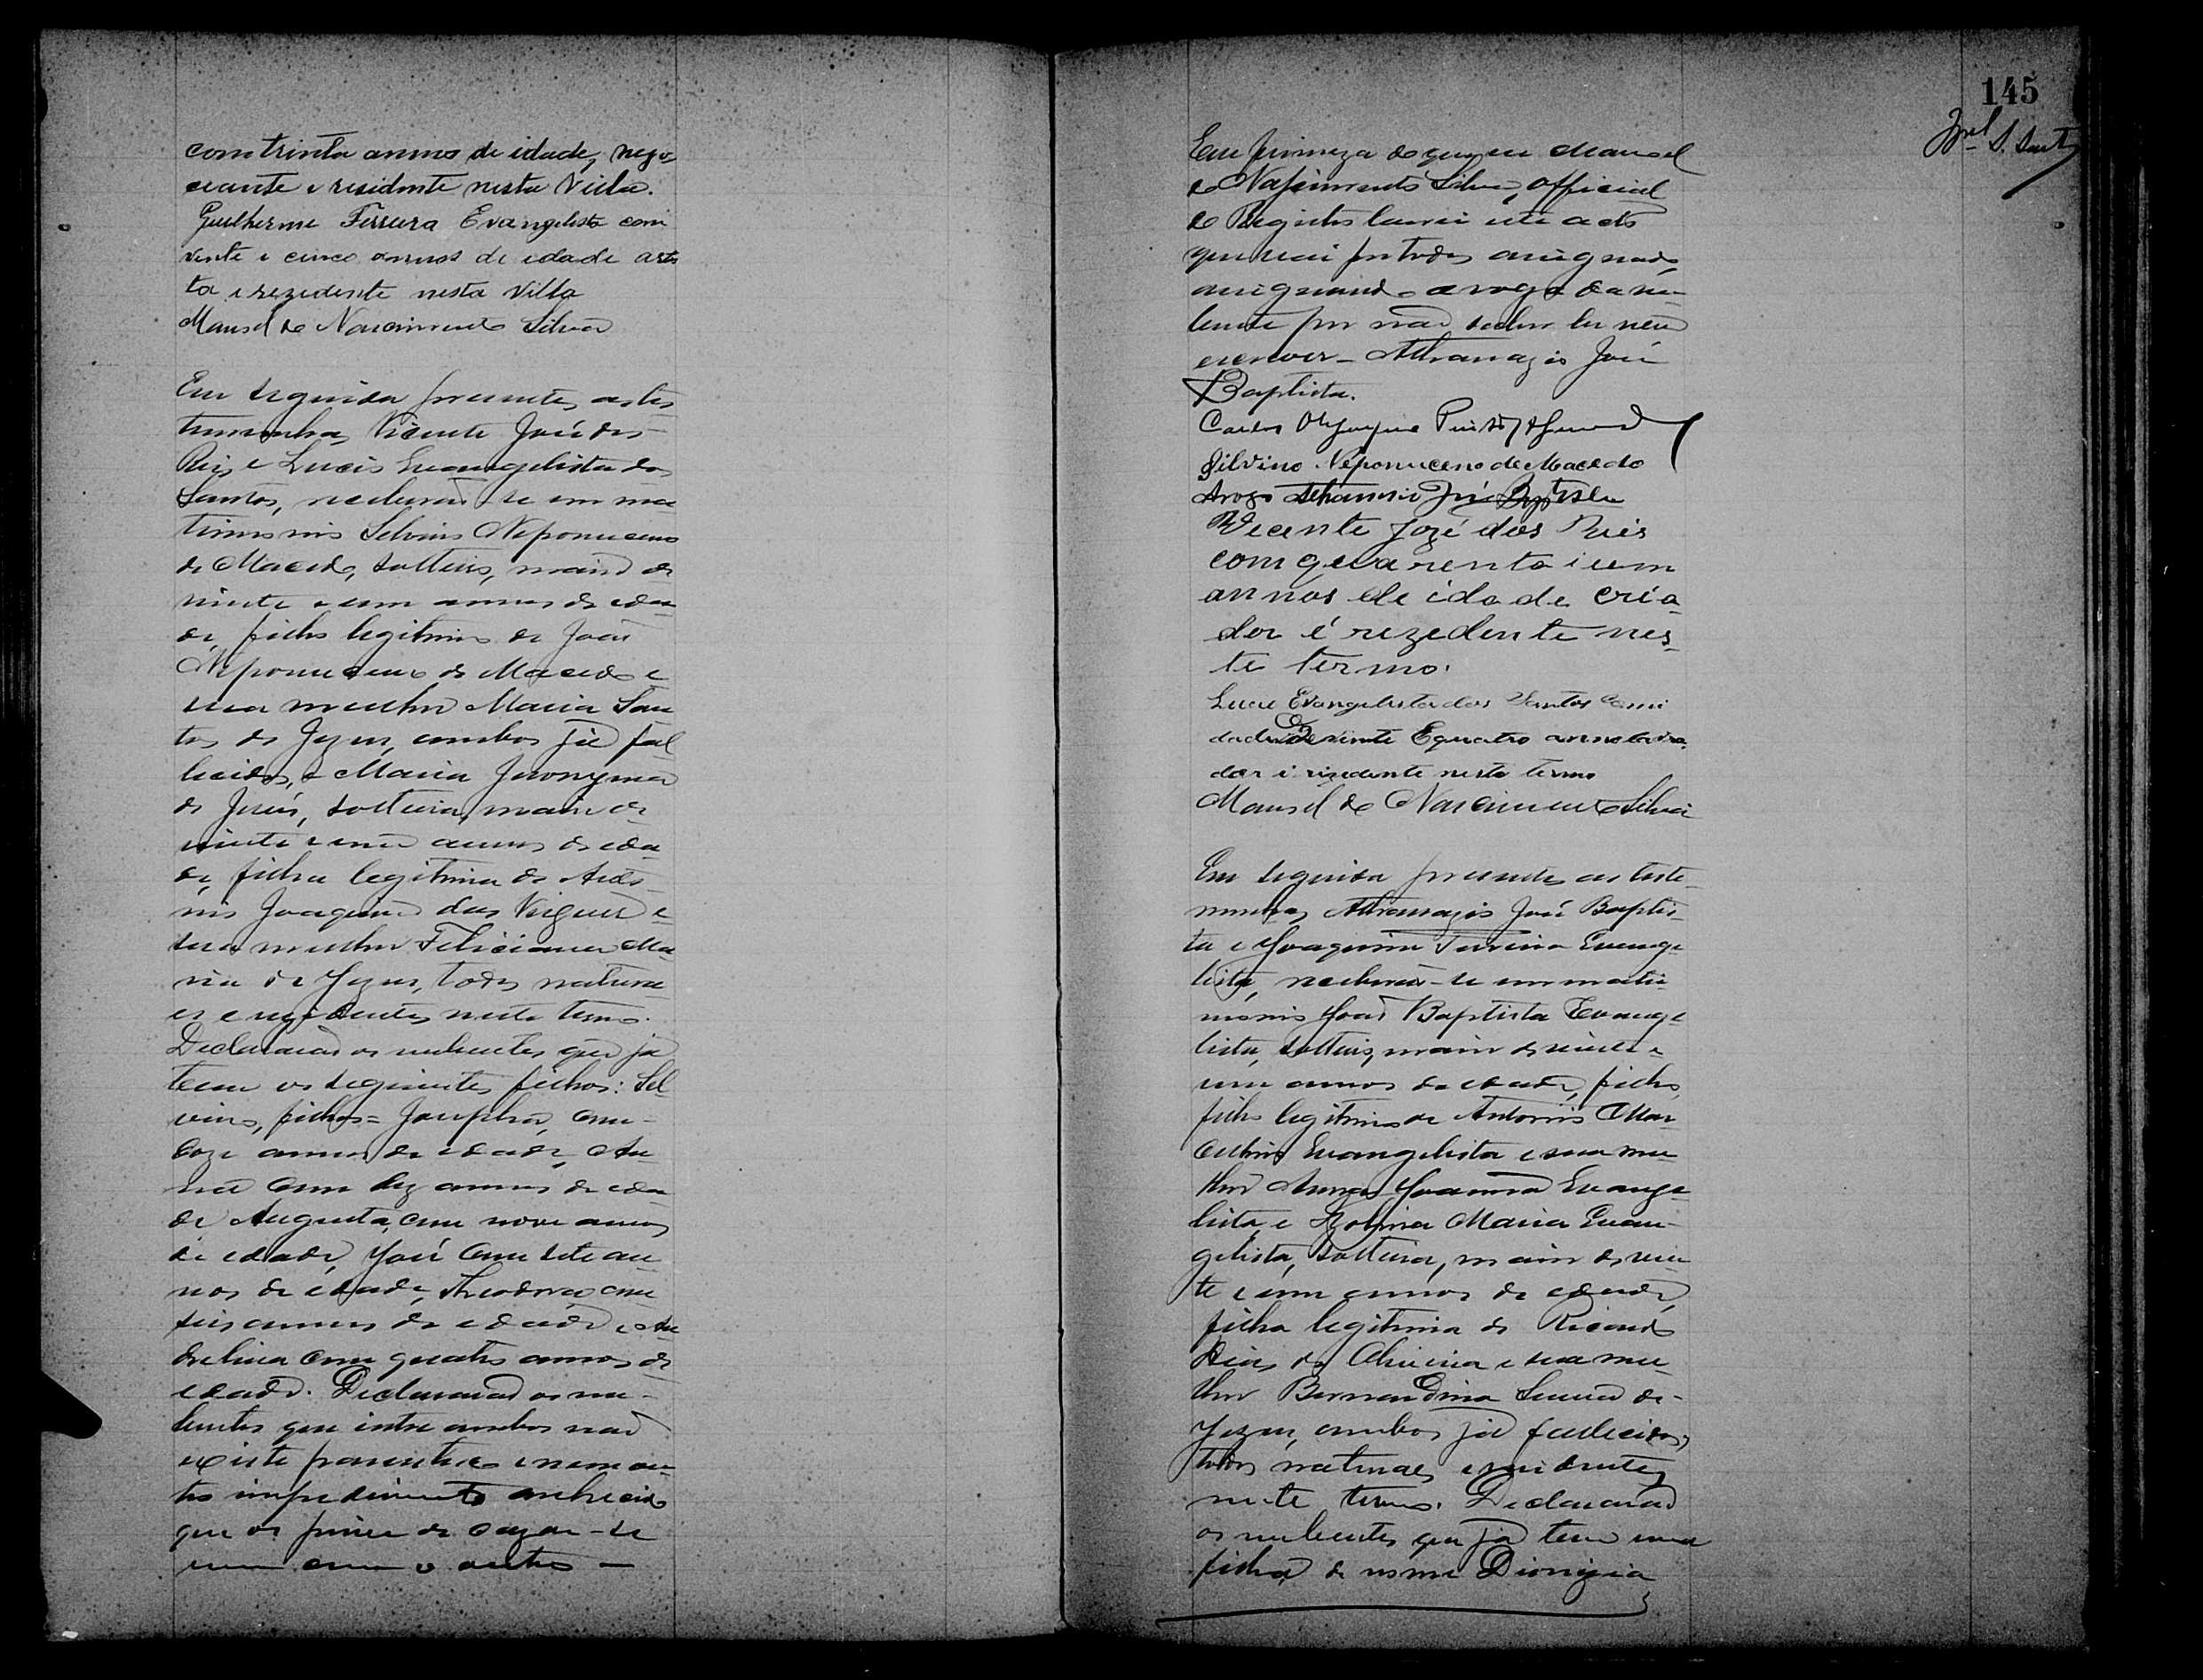 com trinta annos de idade, nego-
ciante e residente nesta Villa.
Guilherme Ferreira Evangelista com
vinte e cinco annos de idade artis
ta e rezidente nesta Villa
Manoel do Nascimento Silva
Em seguida presentes as tes
temunhas Vicente José dos
Reis e Lucio Evangelista dos
Santos, receberão-se em ma
trimonio Selvino Nepomuceno
de Macedo, solteiro, maior de
vinte e um annos de ida
de, filho legitimo de João
Nepomuceno de Macedo e
sua mulher Maria San
tos de Jezus, ambos já fal
lecidos, e Maria Jeronyma
de Jesús, solteira, maior de
vinte e um annos de ida
de, filha legitima de Anto-
nio Joaquim das Virgens e
sua mulher Feliciana Ma
ria de Jezus, todos natura
es e rezidentes neste termo.
Declararão os nubentes que já
teem os seguintes filhos: Sel
vino, filhos = Josepha, com
doze annos de idade, An
na com dez annos de ida
de Augusta, com nove annos
de idade, José com sete an
nos de idade, Theodora com
seis annos de idade e An
delina com quatro annos de
idade. Declararão os nu-
bentes que entre ambos não
existe parentesco e nem ou
tro impedimento conhecido
que os prive de cazar-se
um com o outro —
145
Em firmeza do que eu Manoel
do Nascimento Silva, official
do Registro lavrei este acto
que vai por todos assignado,
assignando a rogo da nu-
bente por não saber ler nem
escrever - Athanazio José
Baptista.
Carlos
Silvino Nepomuceno de Macedo
Arogo Athanasio José Baptista
Vicente José dos Reis
com quarenta i um
annos de idade cria-
dor é rezedente nes-
te termo.
Lucio Evangelista dos Santos com i
dade de vinte E quatro annos lavra-
dor i rizedente neste termo
Manoel do Nascimento Silva
Em seguida presentes as teste-
munhas Athanazio José Baptis-
ta e Joaquim Ferreira Evange
lista, receberão-se em matri-
monio João Baptista Evange
lista, solteiro, maior de vinte e
um annos de idade, filho,
filho legitimo de Antonio Mar
cellino Evangelista e sua mu
lher Anna Joanna Evange
lista, e Izolina Maria Evan-
gelista, solteira, maior de vin
te e um annos de idade,
filha legitima de Ricardo
Dias de Oliveira e sua mu
lher Bernardina de
Jezus, ambos já fallecidos;
todos naturaes e residentes
neste termo. Declararão
os nubentes que já teem uma
filha de nome Dionizia